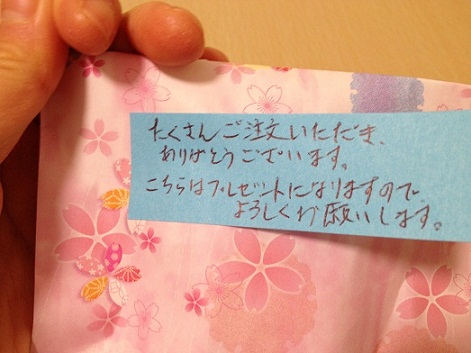 たくさんご注文いただき、
ありがとうございます。
こちらはプレゼントになりますので、
よろしくお願いします。